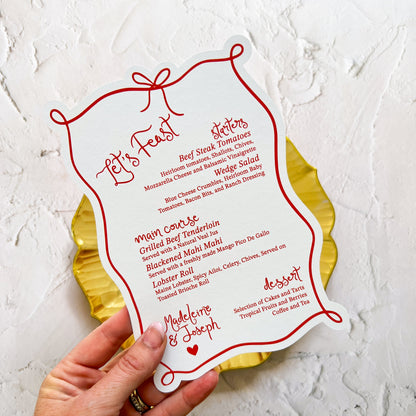 Let's Feast
starters
Beef Steak Tomatoes
Heirloom tomatoes, Shallots, Chives,
Mozzarella Cheese and Balsamic Vinaigrette
Wedge Salad
Blue Cheese Crumbles, Heirloom Baby
Tomatoes, Bacon Bits, and Ranch Dressing
main course
Grilled Beef Tenderloin
Served with a Natural Veal Jus
Blackened Mahi Mahi
Served with a freshly made Mango Pico De Gallo
Lobster Roll
Maine Lobster, Spicy Ailoi, Celery, Chives, Served on
Toasted Brioche Roll
dessert
Selection of Cakes and Tarts
Tropical Fruits and Berries
Coffee and Tea
Madeleine
& Joseph